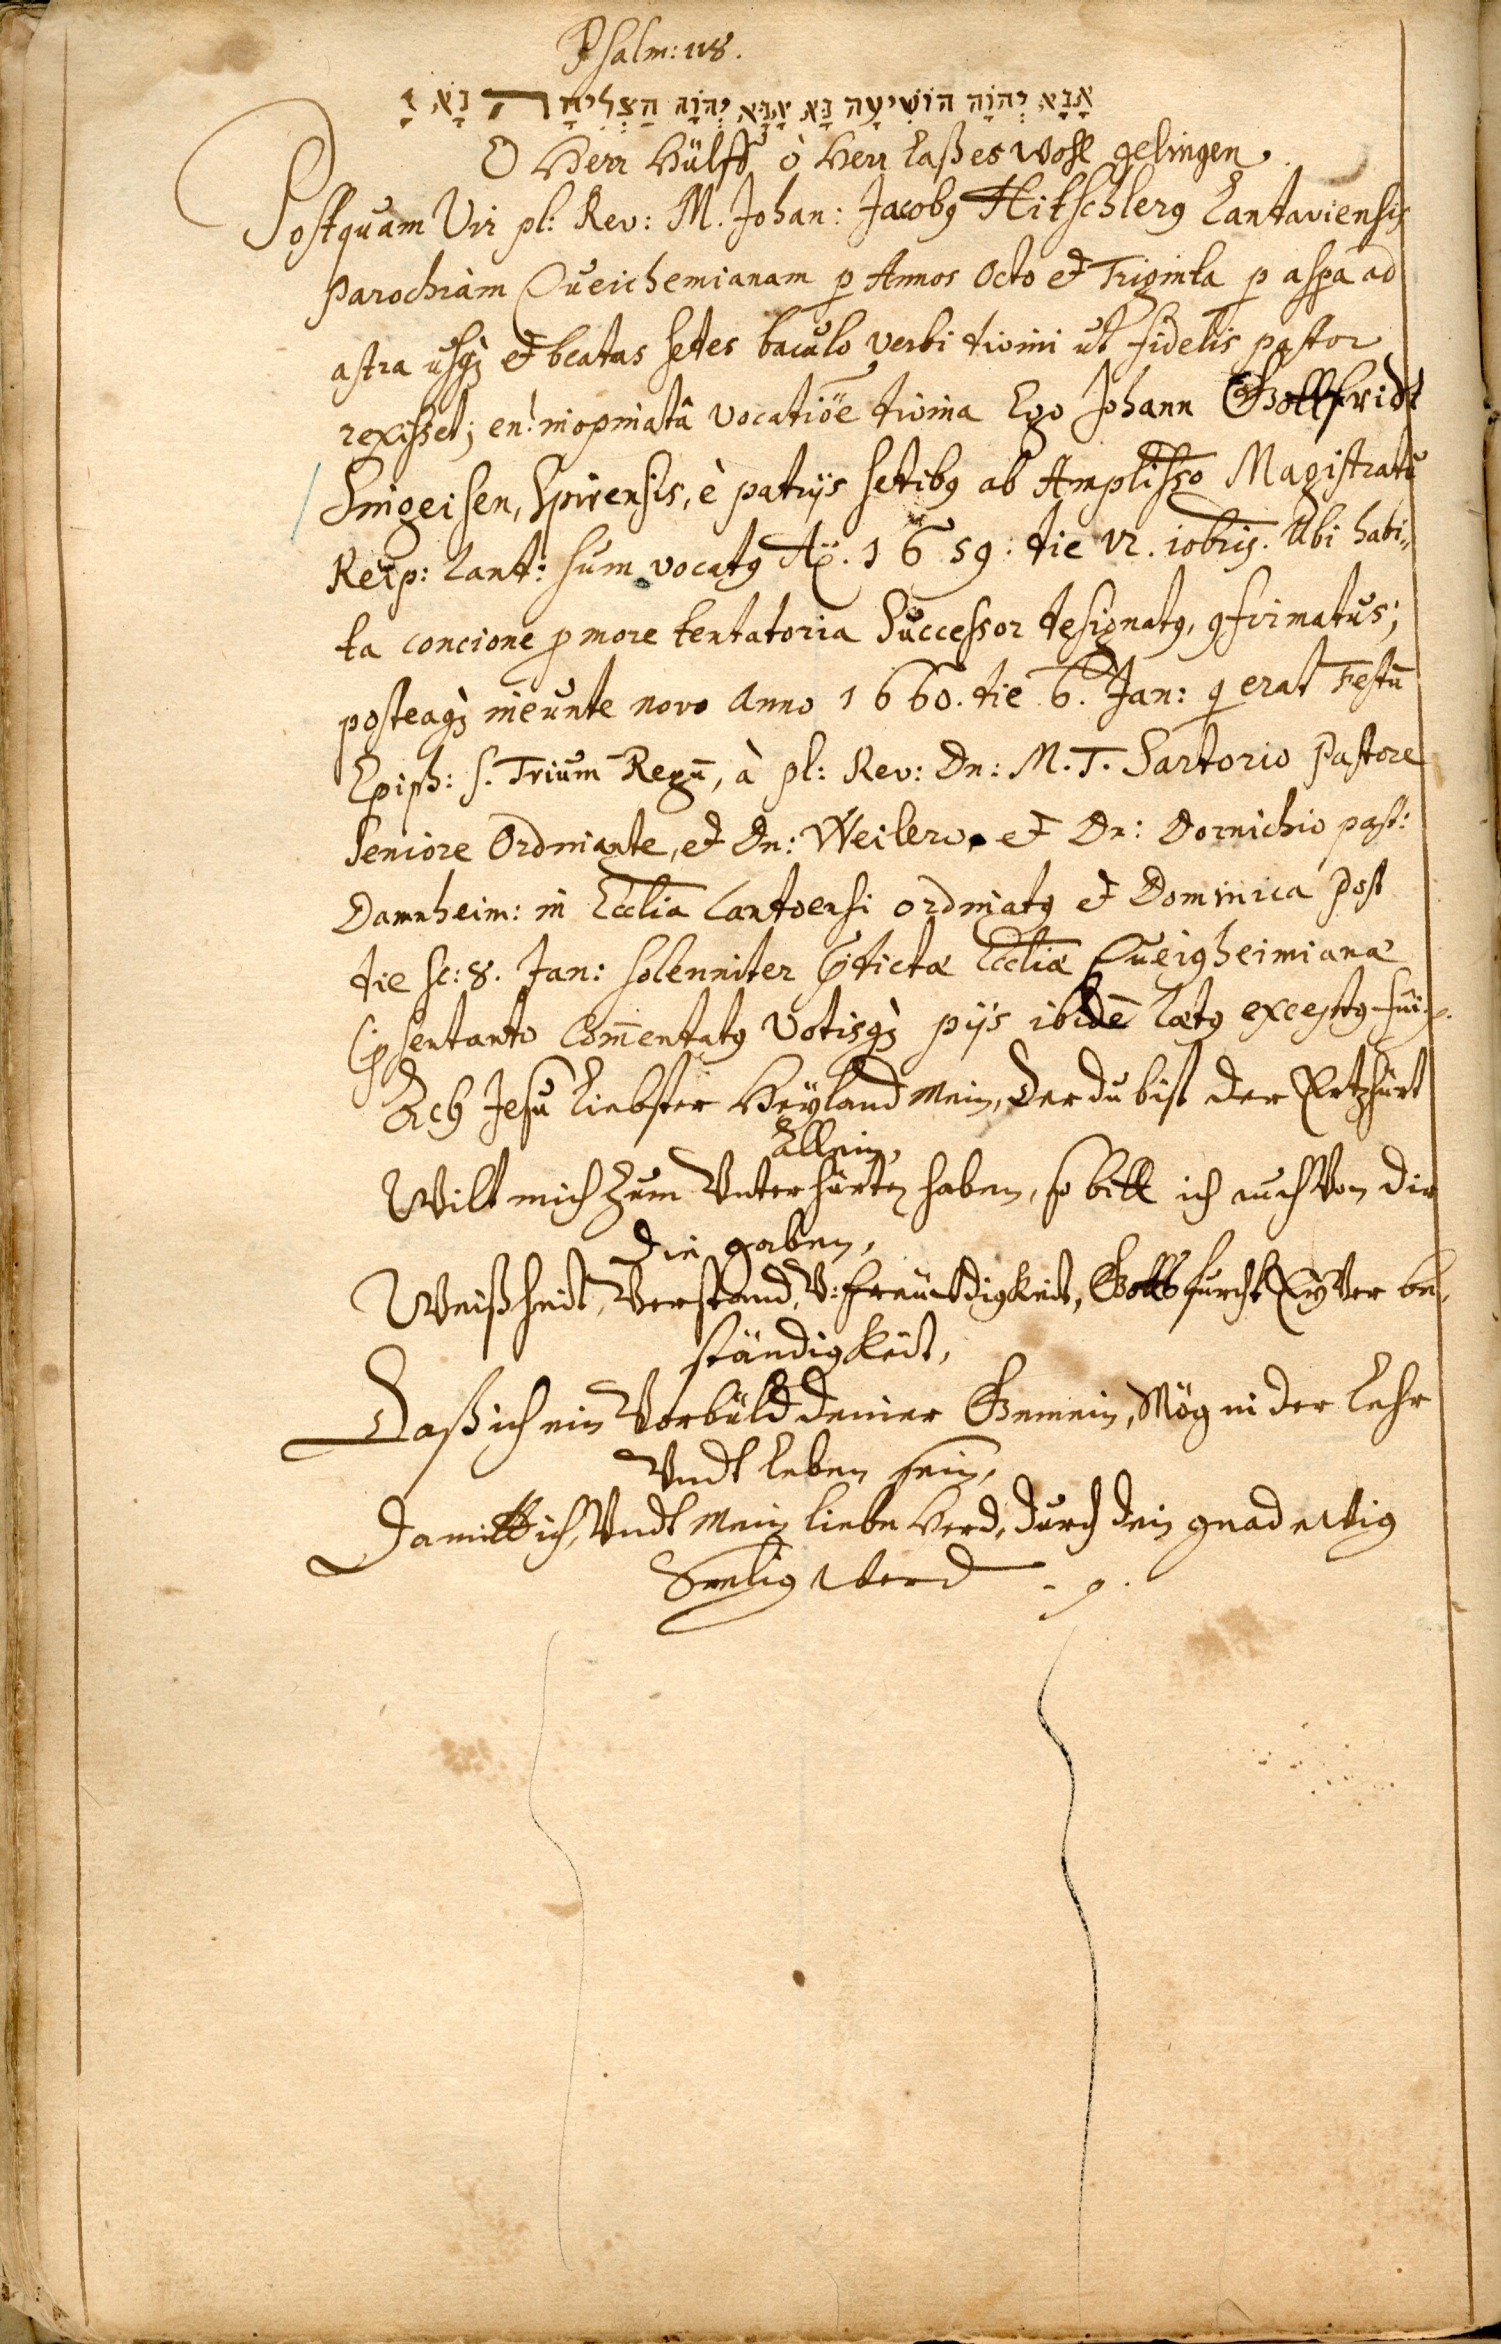 Psalm: 118.
אָנָּא יְהוָֹה הוֹשִׁיעָה נָּא אָנָּא יְהוָֹה הַצְלִיחָה נָּא
O Herr Hülff ô Herr Laß es wohl gelingen.
Postquam Vir pl: Rev: M. Johan: Jacobꝯ Hitschlerꝯ Lantaviensis
Parochiam Queichemianam p Annos Octo et Triginta p aspa ad
astra usqꝫ et beatas sedes baculo verbi divini ut fidelis pastor
rexisset; en! inopinatâ vocatiōe divina Ego Johann Gottfridt
Spirensis, è patrijs sedibꝯ ab Amplisso Magistratu
Reip: Lant: sum vocatꝯ Aõ. 1659: die 12. Xobris. Ubi habi„
ta concione p more tentatoria Successor designatꝯ, ꝯfirmatus;
posteaqꝫ ineunte novo Anno 1660. die 6. Jan: q erat Festū
Epiph: s. Trium Regū, à pl: Rev: Dn: M. T. Sartorio Pastore
Seniore Ordinante, et Dn: Weilero et Dn: Dornichio past:
Damheim: in Ecclia Lantoensi ordinatꝯ et Dominica post
die sc: 8. Jan: solenniter dictæ Eccliæ Queigheimianæ
Com̄entatꝯ Votisqꝫ pijs ibidē lætꝯ exceptꝯ fui.
Ach Jesu Liebster Heyland mein, Der du bist der Ertzhürt
Allein,
Wilt mich zum Unterhürten haben, so bitt ich auch Von dir
Die gaben,
Weißheit, Verstand, V: freüdigkeit, Gottsfurcht Eyver be„
ständigkeit,
Daß ich ein Vorbüld deiner Gemein, Mög in der Lehr
Undt Leben sein,
Damitt ich, Undt mein liebe Herd, durch dein gnad ewig
Seelig Werd